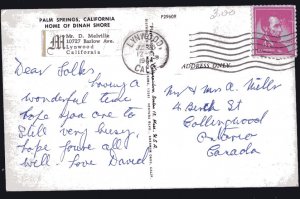 PALM SPRINGS, CALIFORNIA
HOME OF DINAH SHORE
M
Mr. D. Melville
10727 Barlow Ave.
Lynwood
California
P29609
3.00
LYNWOOD
CALIF
ADDRESS ONLY
Dear Folks
having a
wonderful time
hope you are to
still very busy,
hope you're all
well. Love David
Mr & Mrs A. Miller
4 Birch St
Collingwood
Ontario
Canada